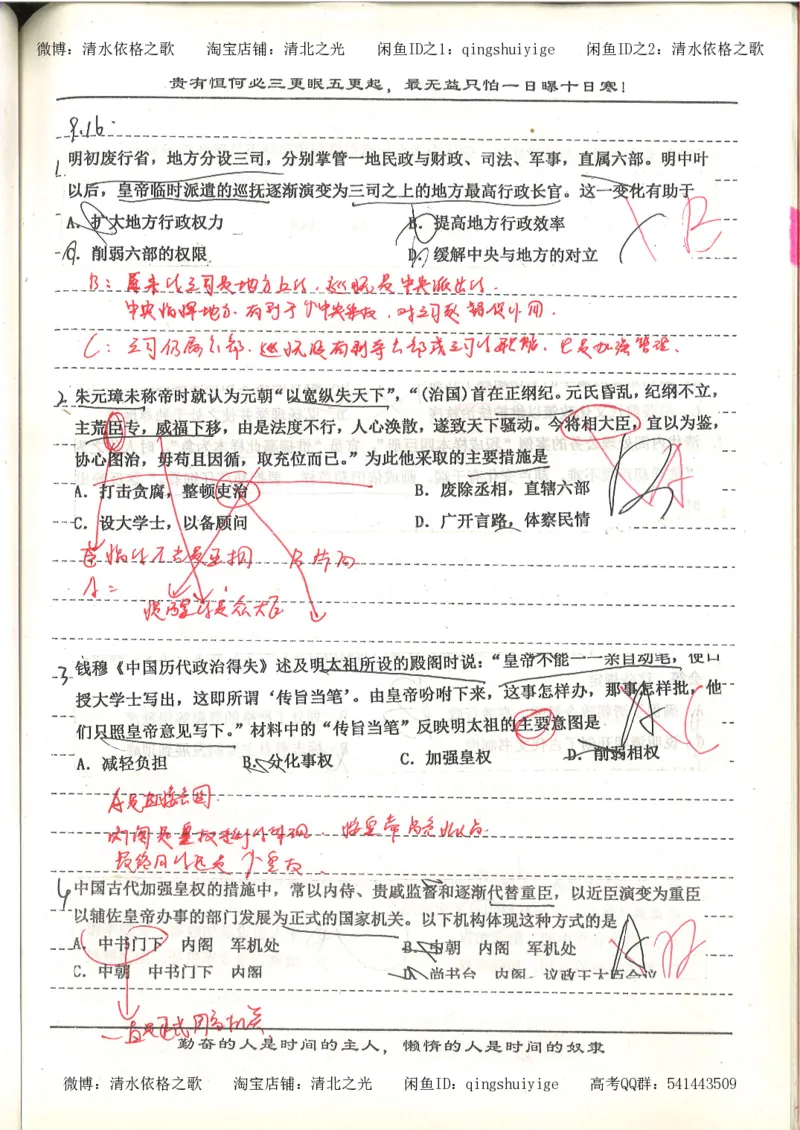 微博：清水依格之歌　　淘宝店铺：清北之光　　闲鱼ID之1：qingshuiyige　　闲鱼ID之2：清水依格之歌
贵有恒何必三更眠五更起，最无益只怕一日曝十日寒！
9.16.
1. 明初废行省，地方分设三司，分别掌管一地民政与财政、司法、军事，直属六部。明中叶
以后，皇帝临时派遣的巡抚逐渐演变为三司之上的地方最高行政长官。这一变化有助于
A．扩大地方行政权力　　B．提高地方行政效率
C．削弱六部的权限　　D．缓解中央与地方的对立
B：原来的三司是地方上的，巡抚是中央派出的．
C：三司仍属六部，
2. 朱元璋未称帝时就认为元朝“以宽纵失天下”，“(治国)首在正纲纪。元民昏乱，纪纲不立，
主荒臣专，威福下移，由是法度不行，人心涣散，遂致天下骚动。今将相大臣，宜以为鉴，
协心图治，毋苟且因循，取充位而已。”为此他采取的主要措施是
A．打击贪腐，整顿吏治　　B．废除丞相，直辖六部
C．设大学士，以备顾问　　D．广开言路，体察民情
B片面
A：
3. 钱穆《中国历代政治得失》述及明太祖所设的殿阁时说：“皇帝不能一一亲自动笔，便口
授大学士写出，这即所谓‘传旨当笔’。由皇帝吩咐下来，这事怎样办，那事怎样批，他
们只照皇帝意见写下。”材料中的“传旨当笔”反映明太祖的主要意图是
A．减轻负担　　B．分化事权　　C．加强皇权　　D．削弱相权
A是直接意图．
4. 中国古代加强皇权的措施中，常以内侍、贵戚监督和逐渐代替重臣，以近臣演变为重臣
以辅佐皇帝办事的部门发展为正式的国家机关。以下机构体现这种方式的是
A．中书门下　内阁　军机处　　B．中朝　内阁　军机处
C．中朝　中书门下　内阁　　D．尚书台　内阁　议政王大臣会议
一直是正式国家机关．
勤奋的人是时间的主人，懒惰的人是时间的奴隶
微博：清水依格之歌　　淘宝店铺：清北之光　　闲鱼ID：qingshuiyige　　高考QQ群：541443509